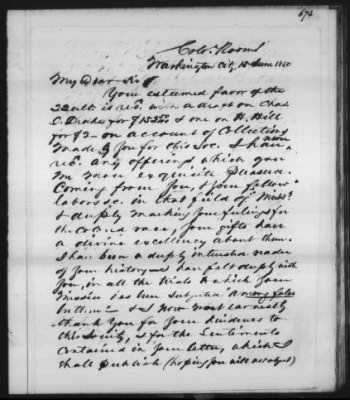 673
Colo. Rooms
Washington City, 15 June 1840
My Dear Sir
Your esteemed favor of the
22 ult. is rec. with a draft on Chas
C. Drake for & one on H. Hill
for $2 - on account of Collections
made by you for this Soc. I
rec. any offering which you
more exquisite pleasure.
Coming from you, & your fellow
laborers in that field of Miss.
& deeply marking your feelings for
the colored race, your gifts have
a divine excellency about them.
I have been a deeply interested reader
of your history & have felt deeply with
you, in all the trials to which your
Mission has been subjected Among false
& I now most earnestly
thank you for your kindness to
this Society, & for the Sentiments
contained in your letter, which I
shall publish (hoping you will not object)